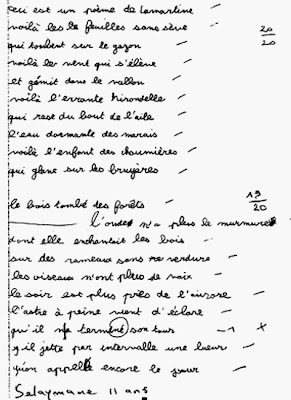 ceci est un poème de lamartine
voilà les feuilles sans sève 20/20
qui tombent sur le gazon
voilà le vent qui s'élève
et gémit dans le vallon
voilà l'errante hirondelle
qui rase du bout de l'aile
l'eau dormante des marais
voilà l'enfant des chaumières
qui glane sur les bruyères
le bois tombé des forêts 19/20
l'onde n'a plus le murmure
dont elle enchantait les bois
sur des rameaux sans verdure
les oiseaux n'ont plus de voix
le soir est plus près de l'aurore
l'astre à peine vient d'éclore
qu'il termine son tour -1 x
il jette par intervalle une lueur
qu'on appelle encore le jour
Selaymane 11 ans